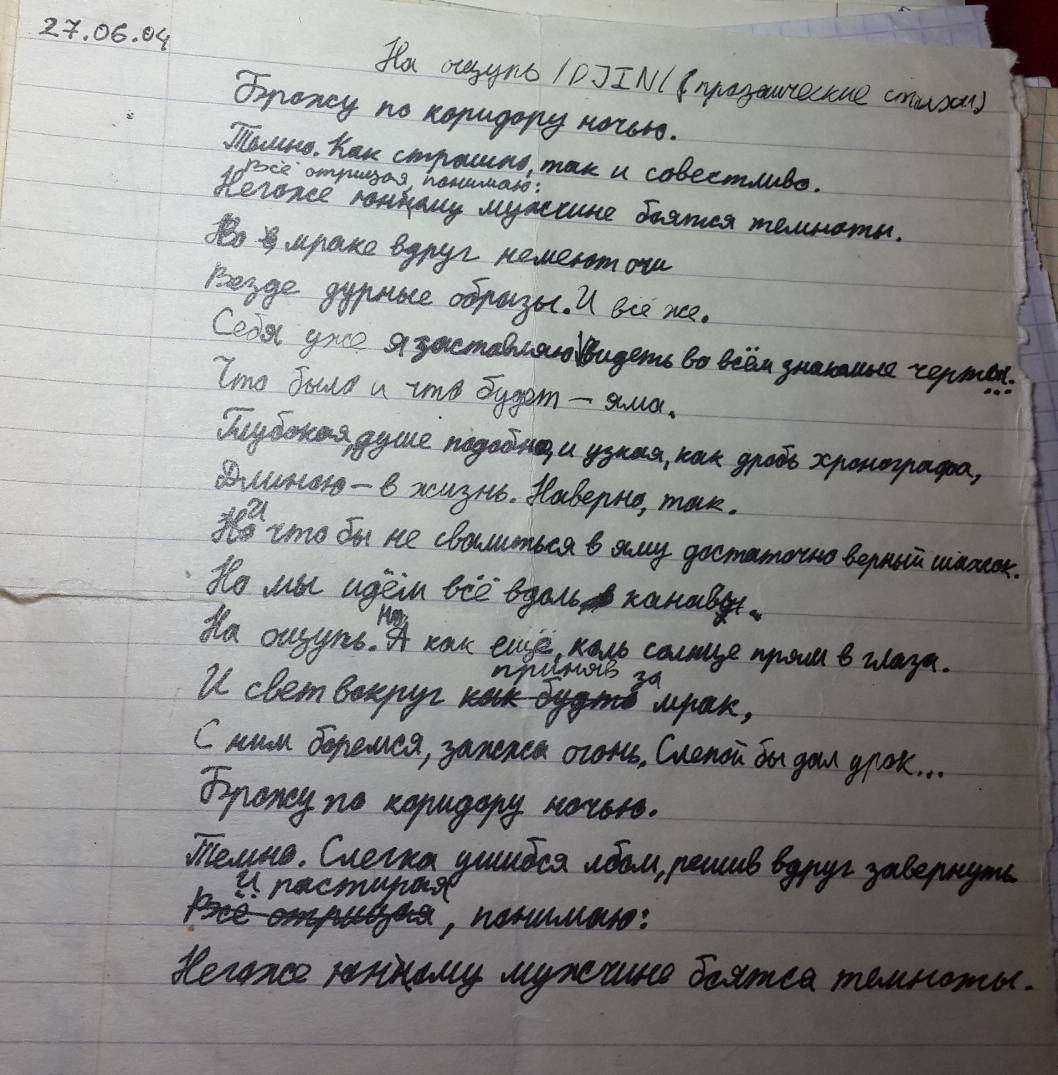 27.06.04
На ощупь /DJIN/ (прозаические стихи)
Брожу по коридору ночью.
Темно. Как страшно, так и совестливо.
Всё отрицая, понимаю:
Негоже юнному мужчине боятся темноты.
Но в мраке вдруг немеют очи
Везде дурные образы. И всё же.
Себя уже я заставляю видеть во всём знакомые черты...
Что было и что будет – яма.
Глубокая, душе подобно, и узкая, как дробь хронографа,
Длиною – в жизнь. Наверно, так.
И
Но что бы не свалиться в яму достаточно верный шажок.
Но мы идём всё вдоль канавы.
Но
На ощупь. А как ещё, коль солнце прям в глаза.
приняв за
И свет вокруг как будто мрак,
С ним боремся, зажжа огонь. Слепой бы дал урок...
Брожу по коридору ночью.
Темно. Слегка ушибся лбом, решив вдруг завернуть
И растирая
Всё отрицая, понимаю:
Негоже юнному мужчине боятся темноты.